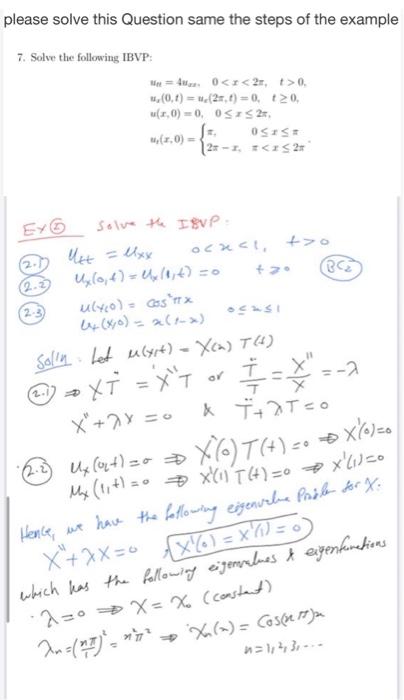 please solve this Question same the steps of the example
7. Solve the following IBVP:
uₜₜ = 4uₓₓ, 0 < x < 2π, t > 0,
uₓ(0, t) = uₓ(2π, t) = 0, t ≥ 0,
u(x, 0) = 0, 0 ≤ x ≤ 2π,
uₜ(x, 0) = { π, 0 ≤ x ≤ π
2π − x, π < x ≤ 2π .
Ex⑤ Solve the IBVP:
(2.1) Uₜₜ = Uₓₓ 0<x<1, t>0
(2.2) Uₓ(0,t) = Uₓ(1,t) = 0 t>0 (BC2)
(2.3) U(x,0) = cos²πx
Uₜ(x,0) = x(1-x) 0≤x≤1
Solⁿ: Let u(x,t) = X(x) T(t)
(2.1) ⇒ XT̈ = X"T or T̈/T = X"/X = -λ
X"+λX = 0 & T̈+λT = 0
(2.2) Uₓ(0,t)=0 ⇒ X'(0)T(t)=0 ⇒ X'(0)=0
Uₓ(1,t)=0 ⇒ X'(1) T(t)=0 ⇒ X'(1)=0
Hence, we have the following eigenvalue Problem for X:
X"+λX=0, X'(0) = X'(1) = 0
which has the following eigenvalues & eigenfunctions
· λ=0 ⇒ X = X₀ (constant)
λₙ=(nπ/1)² = n²π² ⇒ Xₙ(x) = Cos(nπ)x
n=1,2,3,...